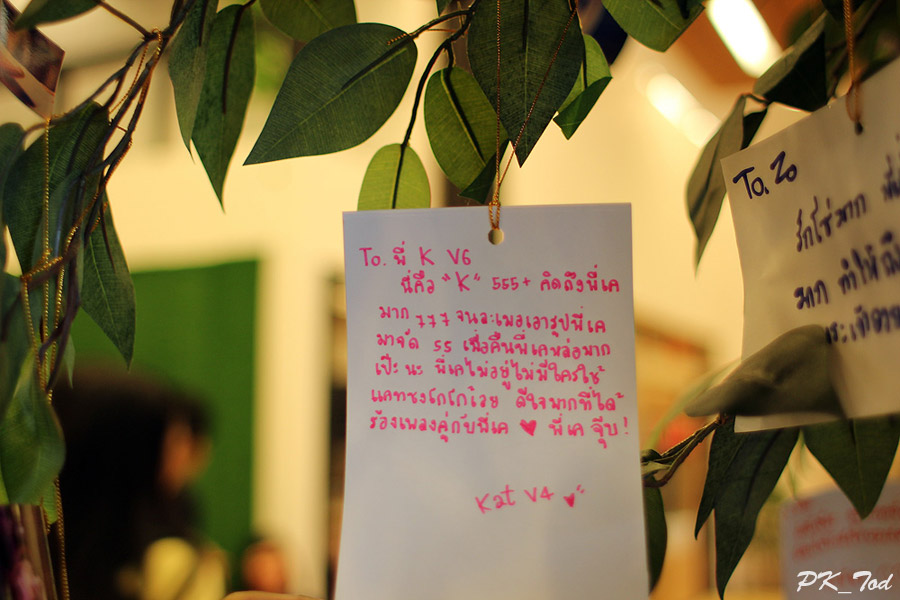 To. พี่ K V6
นี่คือ "K" 555+ คิดถึงพี่เค
มาก 777 จนละเมอเอารูปพี่เค
มาจัด 55 เมื่อคืนพี่เคหล่อมาก
เป๊ะนะ พี่เคไม่อยู่ไม่มีใครใช้
แคทชงโกโก้เลย ดีใจมากที่ได้
ร้องเพลงคู่กับพี่เค ♥ พี่เค จุ๊บ!
Kat V4 ♥
To. Zo
รักโซ่มาก
มาก ทำให้
PK_Tod